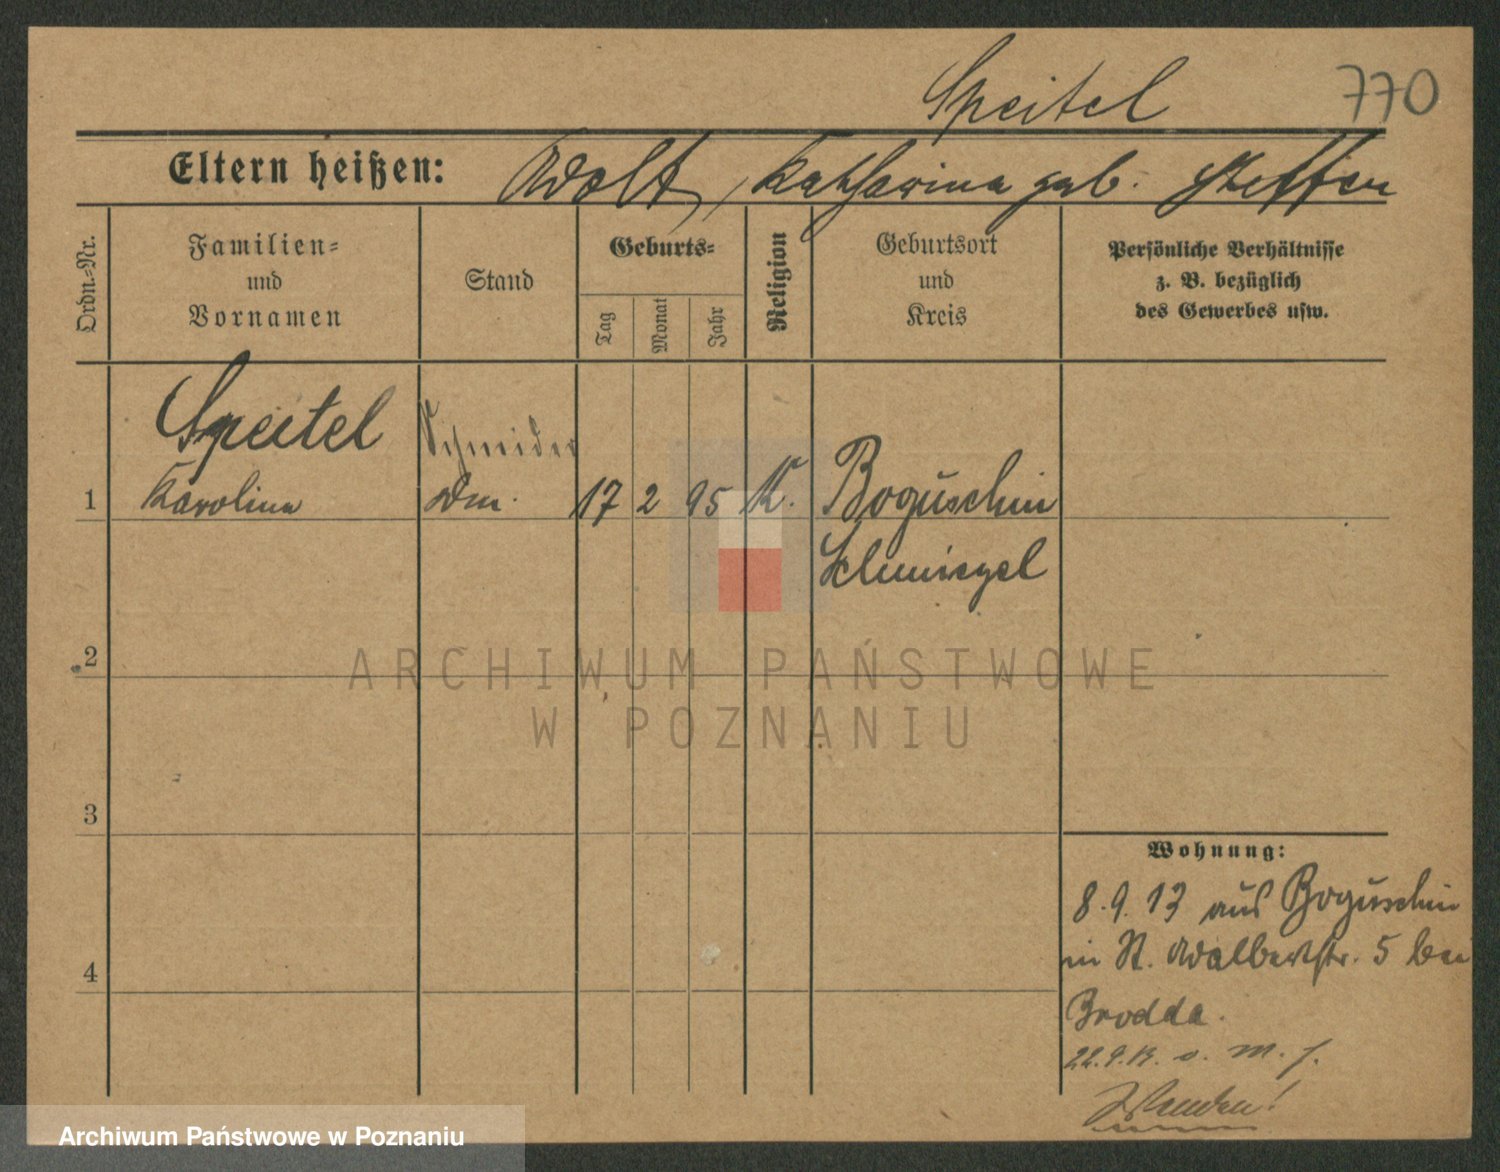 Speitel 770
Eltern heißen: Adolf, Katharina geb. Steffen
Ordn.-Nr.
Familien-
und
Vornamen
Stand
Geburts-
Tag
Monat
Jahr
Religion
Geburtsort
und
Kreis
Persönliche Verhältnisse
z. B. bezüglich
des Gewerbes usw.
Speitel Schneider
1 Karolina 17 2 95 K. Boguschin
Schmiegel
2
ARCHIWUM PAŃSTWOWE
W POZNANIU
3
Wohnung:
8.9.13 aus Boguschin
in St. Adalbertstr. 5 bei
4
Brodda.
22.9.13. o. m. f.
Wenden!
Archiwum Państwowe w Poznaniu